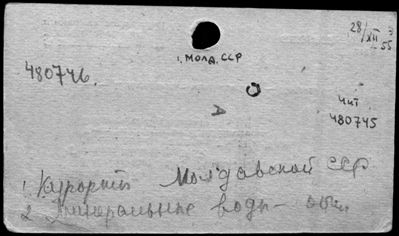 28/XII 3
55
1. МОЛД. ССР
480746.
Чит
480745
1. Курорты Молдавской ССР
2. Минеральные воды – общ.